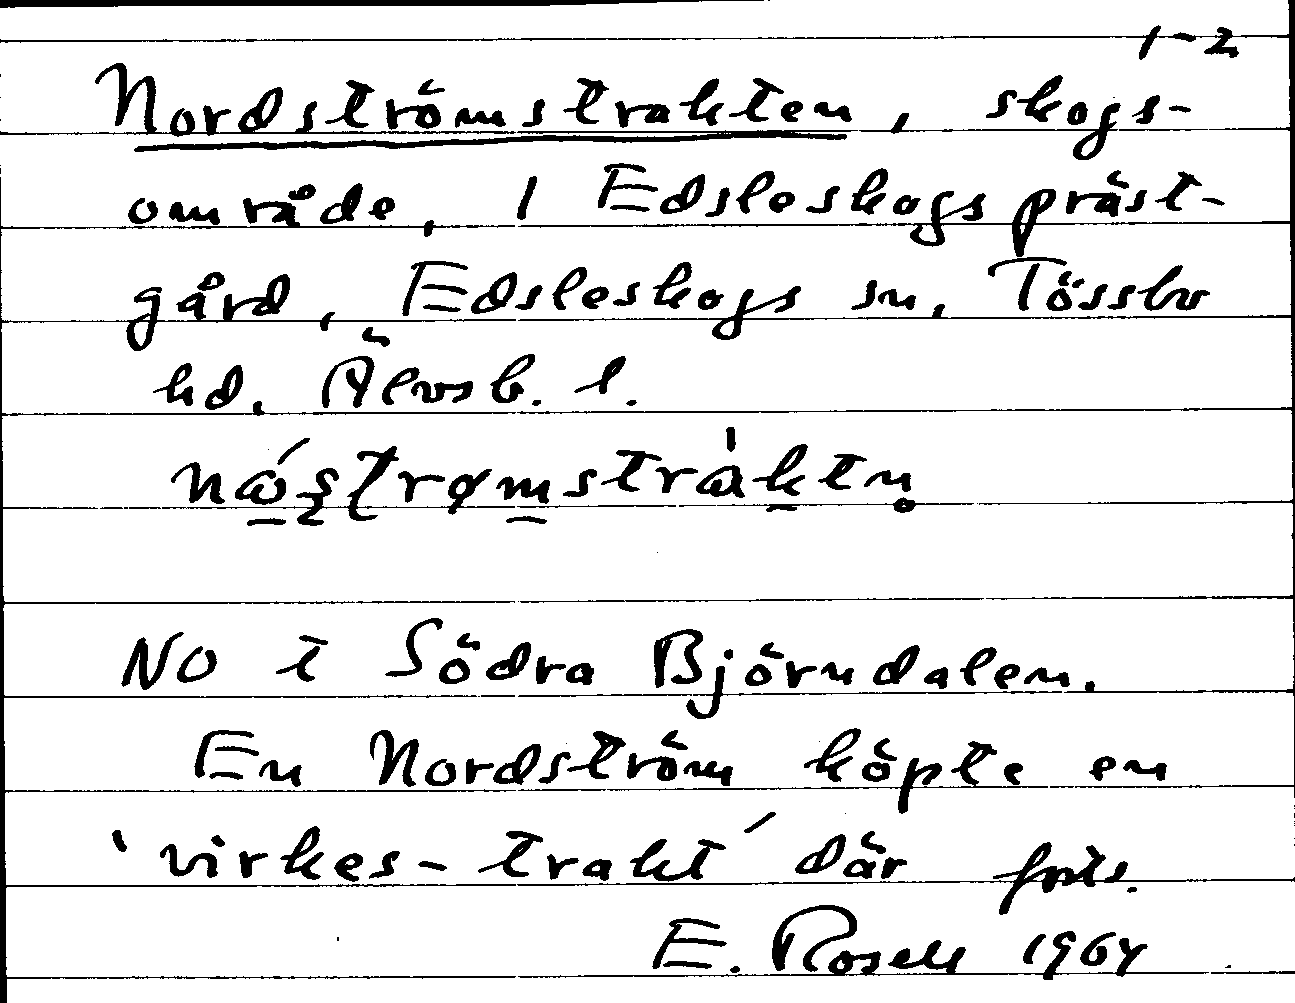 1-2
Nordströmstrakten, skogs-
område, 1 Edsleskogs präst-
gård, Edsleskogs sn, Tössbo
hd. Älvsb. l.
NO i Södra Björndalen.
En Nordström köpte en
'virkes-trakt' där forts.
E. Rosell 1964